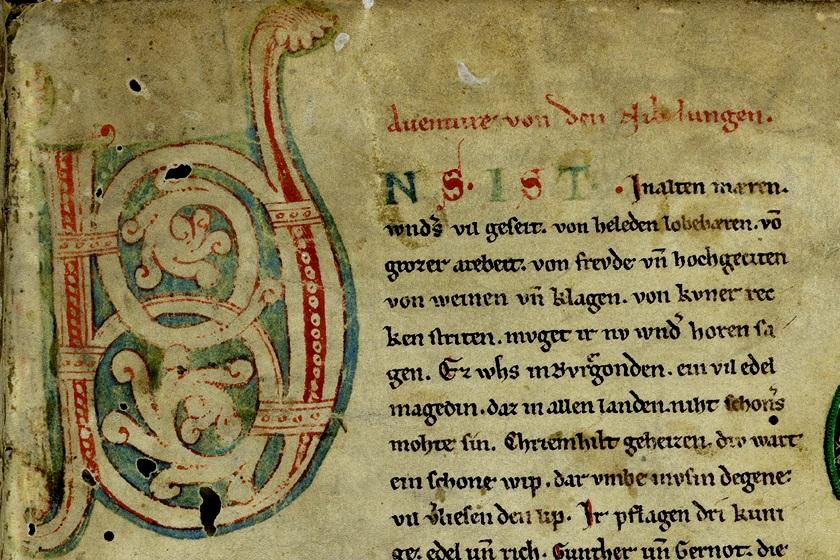 Auenture von den Nibelungen.
VNS. IST. Inalten mæren.
wnd͛s vil geseit. von heleden lobebæren. vō
grozer arebeit. von frevde vn̄ hochgeciten
von weinen vn̄ klagen. von kvner rec
ken striten. mvget ir nv wnd͛ horen sa
gen. Ez whs inBvrgonden. ein vil edel
magedin. daz in allen landen. niht schon͛s
mohte sin. Chriemhilt geheizen. div wart
ein schone wip. dar vmbe mvsin degene
vil v͛liesen den lip. Ir pflagen dri kuni
ge. edel vn̄ rich. Gunther vn̄ Gernot. die